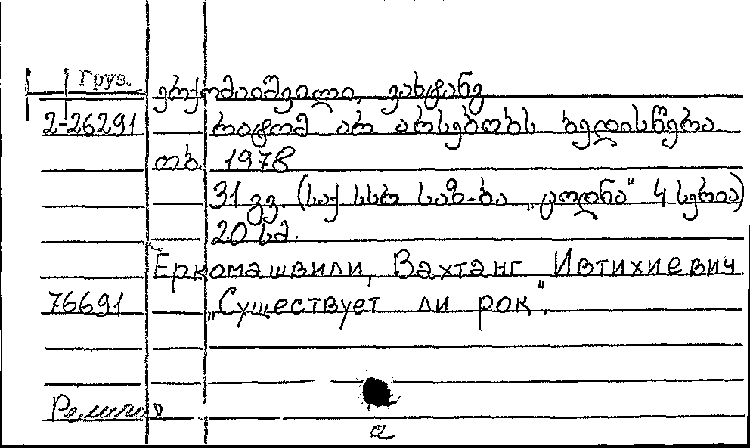 Груз.
ერქომაიშვილი, ვახტანგ
2-26291 რატომ არ არსებობს ბედისწერა
თბ. 1978
31 გვ. (საქ სსრ საზ-ბა „ცოდნა“ 4 სერია)
20 სმ.
Еркомашвили, Вахтанг Ивтихиевич
76691 „Существует ли рок“.
Религия
a